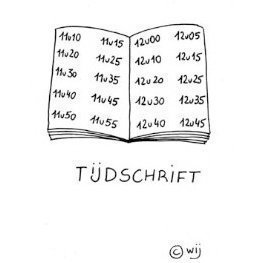 11u10 11u15
11u20 11u25
11u30 11u35
11u40 11u45
11u50 11u55
12u00 12u05
12u10 12u15
12u20 12u25
12u30 12u35
12u40 12u45
TIJDSCHRIFT
© wij